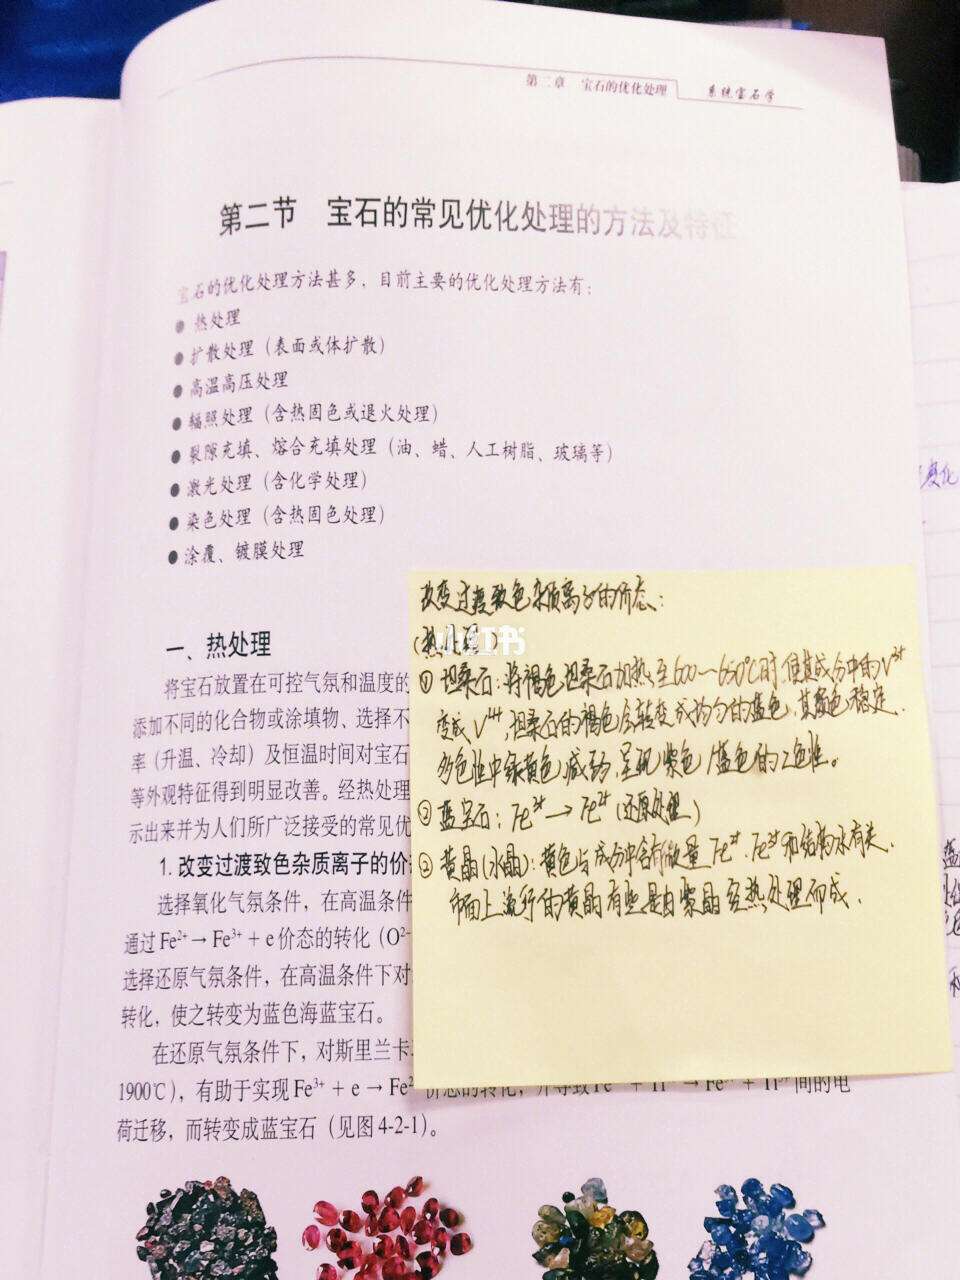 第二章 宝石的优化处理 系统宝石学
第二节 宝石的常见优化处理的方法及特征
宝石的优化处理方法甚多，目前主要的优化处理方法有：
● 热处理
● 扩散处理（表面或体扩散）
● 高温高压处理
● 辐照处理（含热固色或退火处理）
● 裂隙充填、熔合充填处理（油、蜡、人工树脂、玻璃等）
● 激光处理（含化学处理）
● 染色处理（含热固色处理）
● 涂覆、镀膜处理
一、热处理
将宝石放置在可控气氛和温度的
添加不同的化合物或涂填物、选择不
率（升温、冷却）及恒温时间对宝石
等外观特征得到明显改善。经热处理
示出来并为人们所广泛接受的常见优
1.改变过渡致色杂质离子的价
选择氧化气氛条件，在高温条件
通过Fe²⁺→Fe³⁺+e价态的转化（O²⁻
选择还原气氛条件，在高温条件下对
转化，使之转变为蓝色海蓝宝石。
在还原气氛条件下，对斯里兰卡
1900℃），有助于实现Fe³⁺+e→Fe²⁺价态的转化，并导致Fe 间的电
荷迁移，而转变成蓝宝石（见图4-2-1）。
改变过渡致色杂质离子的价态：
（热处理）
小红书
①坦桑石：将褐色坦桑石加热至600～650℃时，使其成分中的V³⁺
变成V⁴⁺，坦桑石的褐色会转变成均匀的蓝色，其颜色稳定.
多色性中绿黄色减弱，呈现紫色/蓝色的二色性。
②蓝宝石：Fe³⁺→Fe²⁺（还原处理）
③黄晶（水晶）：黄色与成分中含有微量Fe³⁺、Fe²⁺和结构水有关.
市面上流行的黄晶有些是由紫晶经热处理而成.
变化